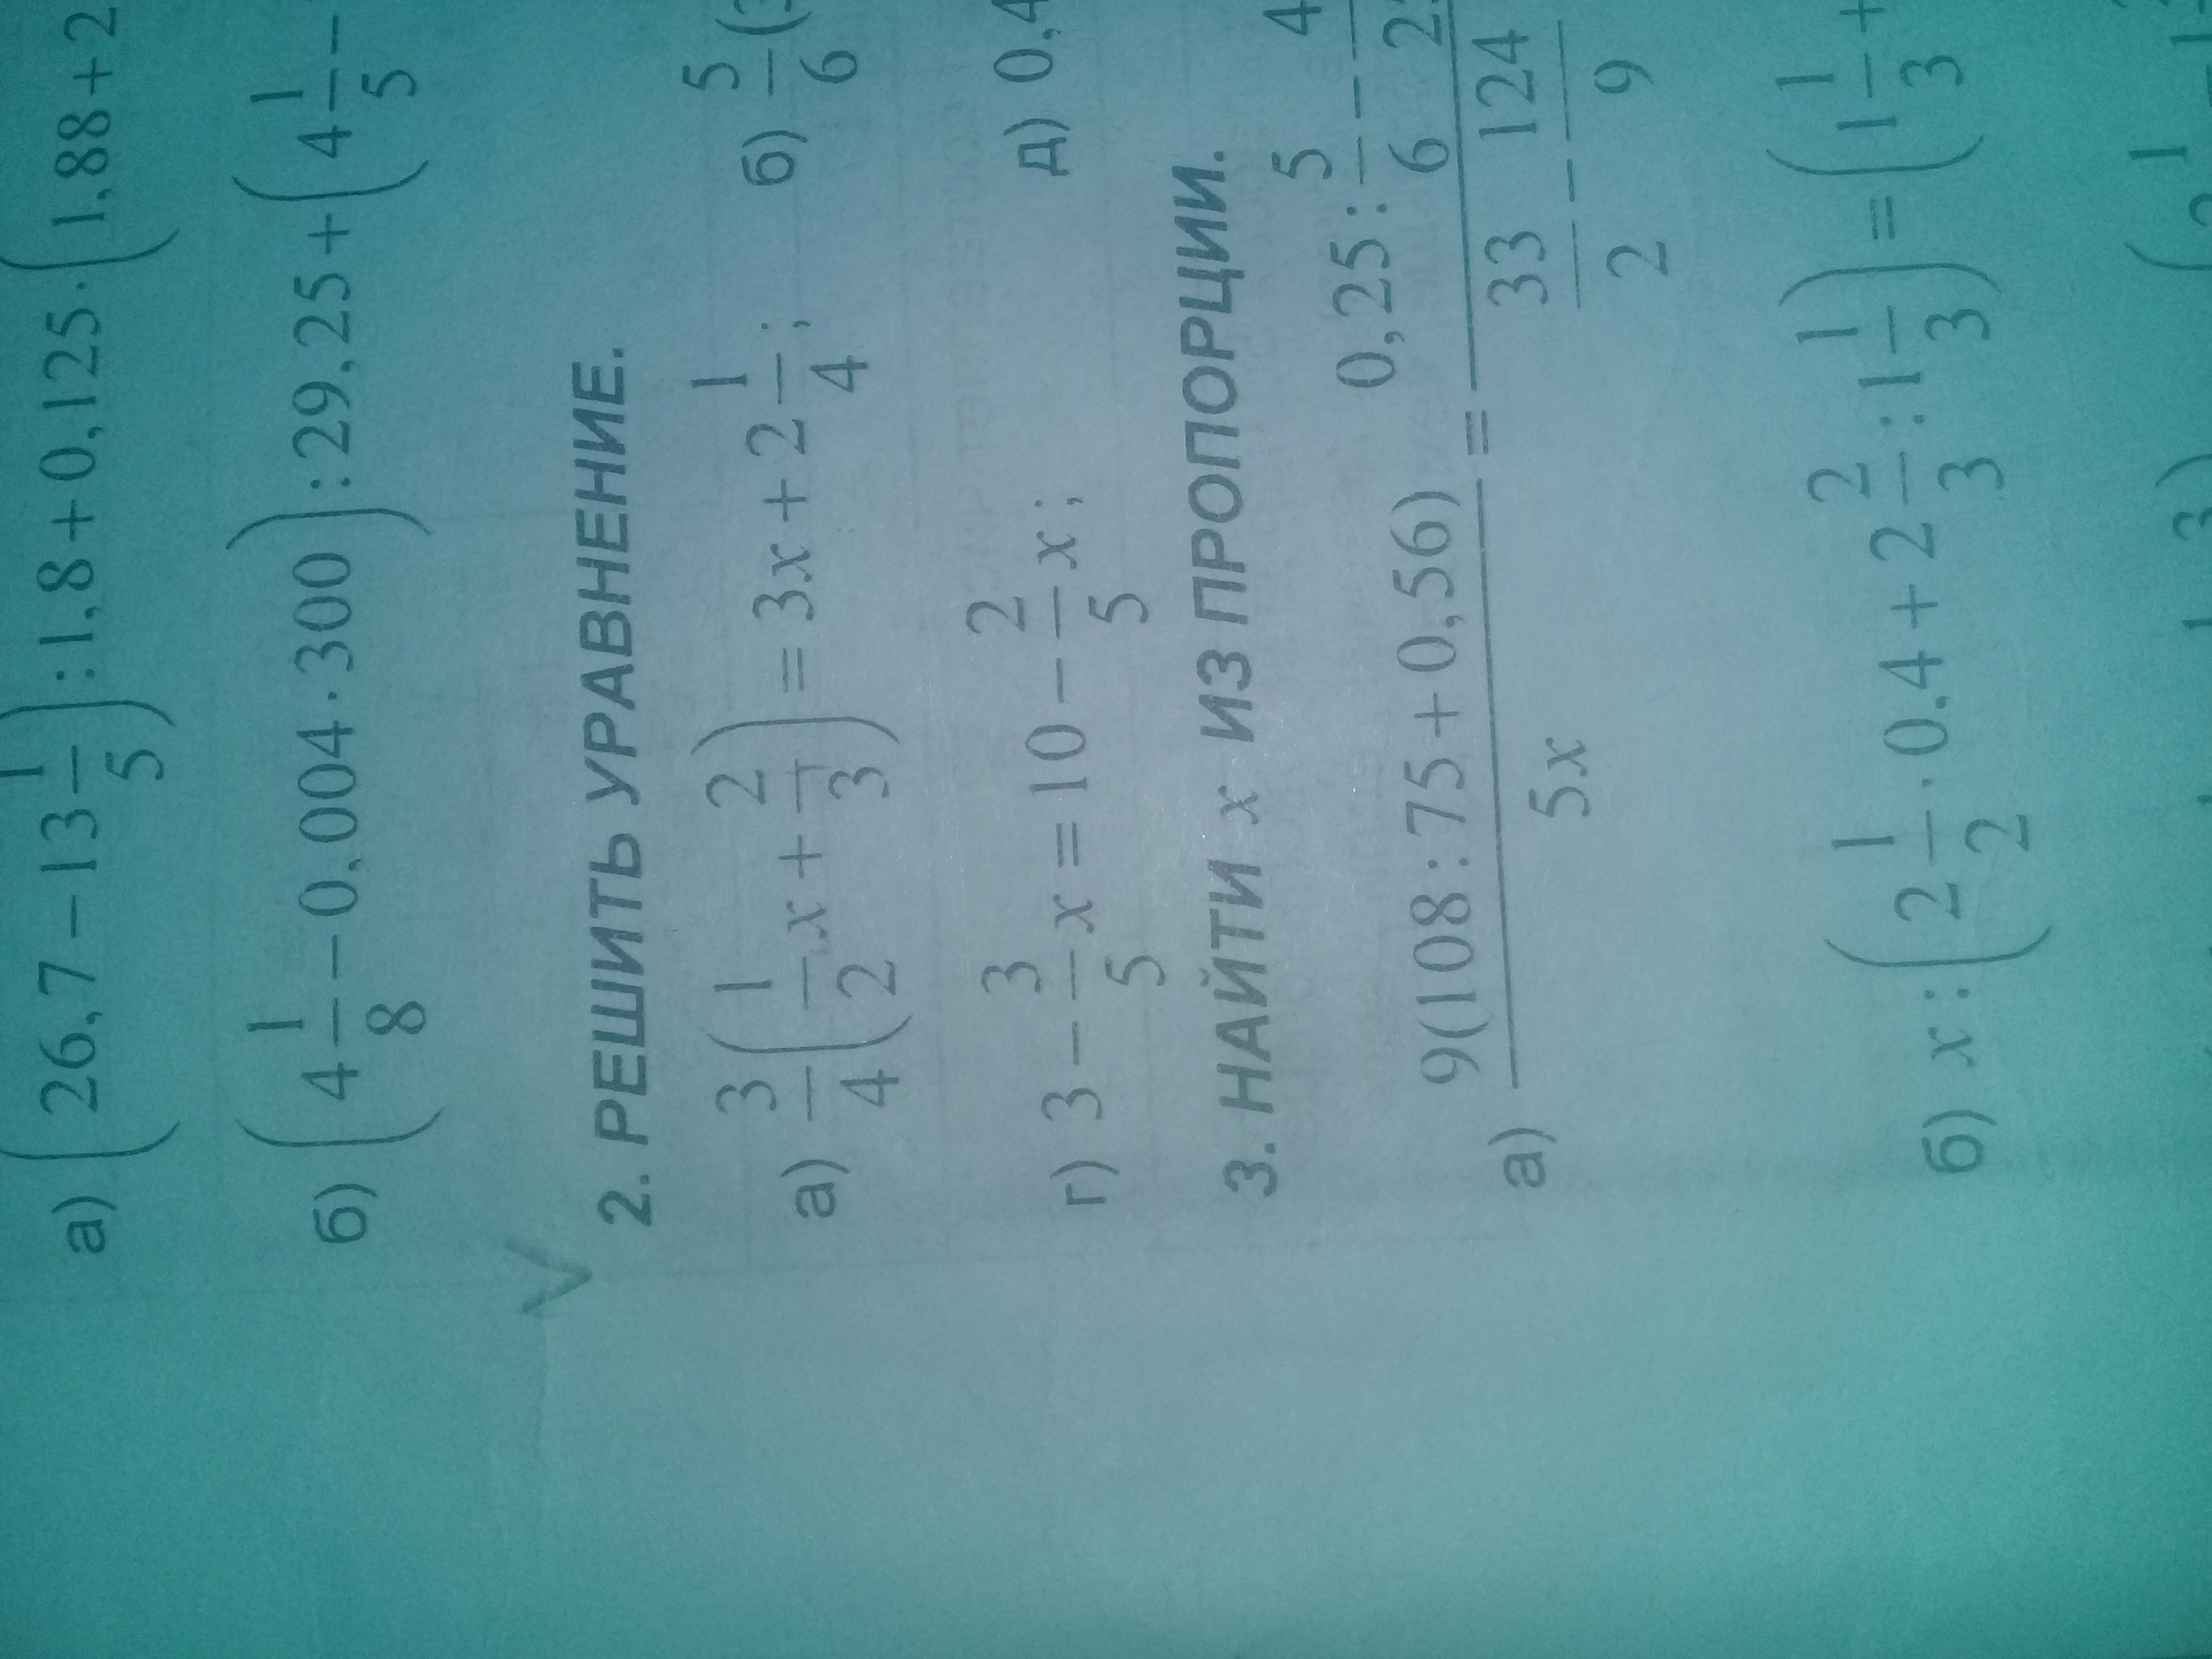 а) (26,7 − 13 1/5) : 1,8 + 0,125 · (1,88 + 2
б) (4 1/8 − 0,004 · 300) : 29,25 + (4 1/5 −
2. РЕШИТЬ УРАВНЕНИЕ.
а) 3/4 (1/2 x + 2/3) = 3x + 2 1/4; б) 5/6 (
г) 3 − 3/5 x = 10 − 2/5 x; д) 0,4
3. НАЙТИ x ИЗ ПРОПОРЦИИ.
а) 9(108 : 75 + 0,56) / 5x = (0,25 : 5/6 − 4/2 / (33/2 − 124/9
б) x : (2 1/2 · 0,4 + 2 2/3 : 1 1/3) = (1 1/3 +